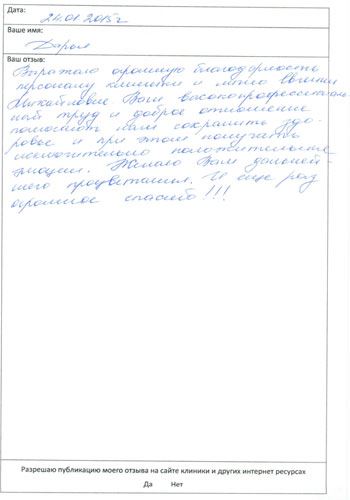 Дата:
21.01.2015г
Ваше имя:
Дарья
Ваш отзыв:
Выражаю огромную благодарность
персоналу клиники и лично Евгении
Михайловне. Ваш высокопрофессиональ
ный труд и доброе отношение
помогают нам сохранить здо-
ровье и при этом получать
исключительно положительные
эмоции. Желаю Вам дальней-
шего процветания. И еще раз
огромное спасибо!!!
Разрешаю публикацию моего отзыва на сайте клиники и других интернет ресурсах
Да Нет